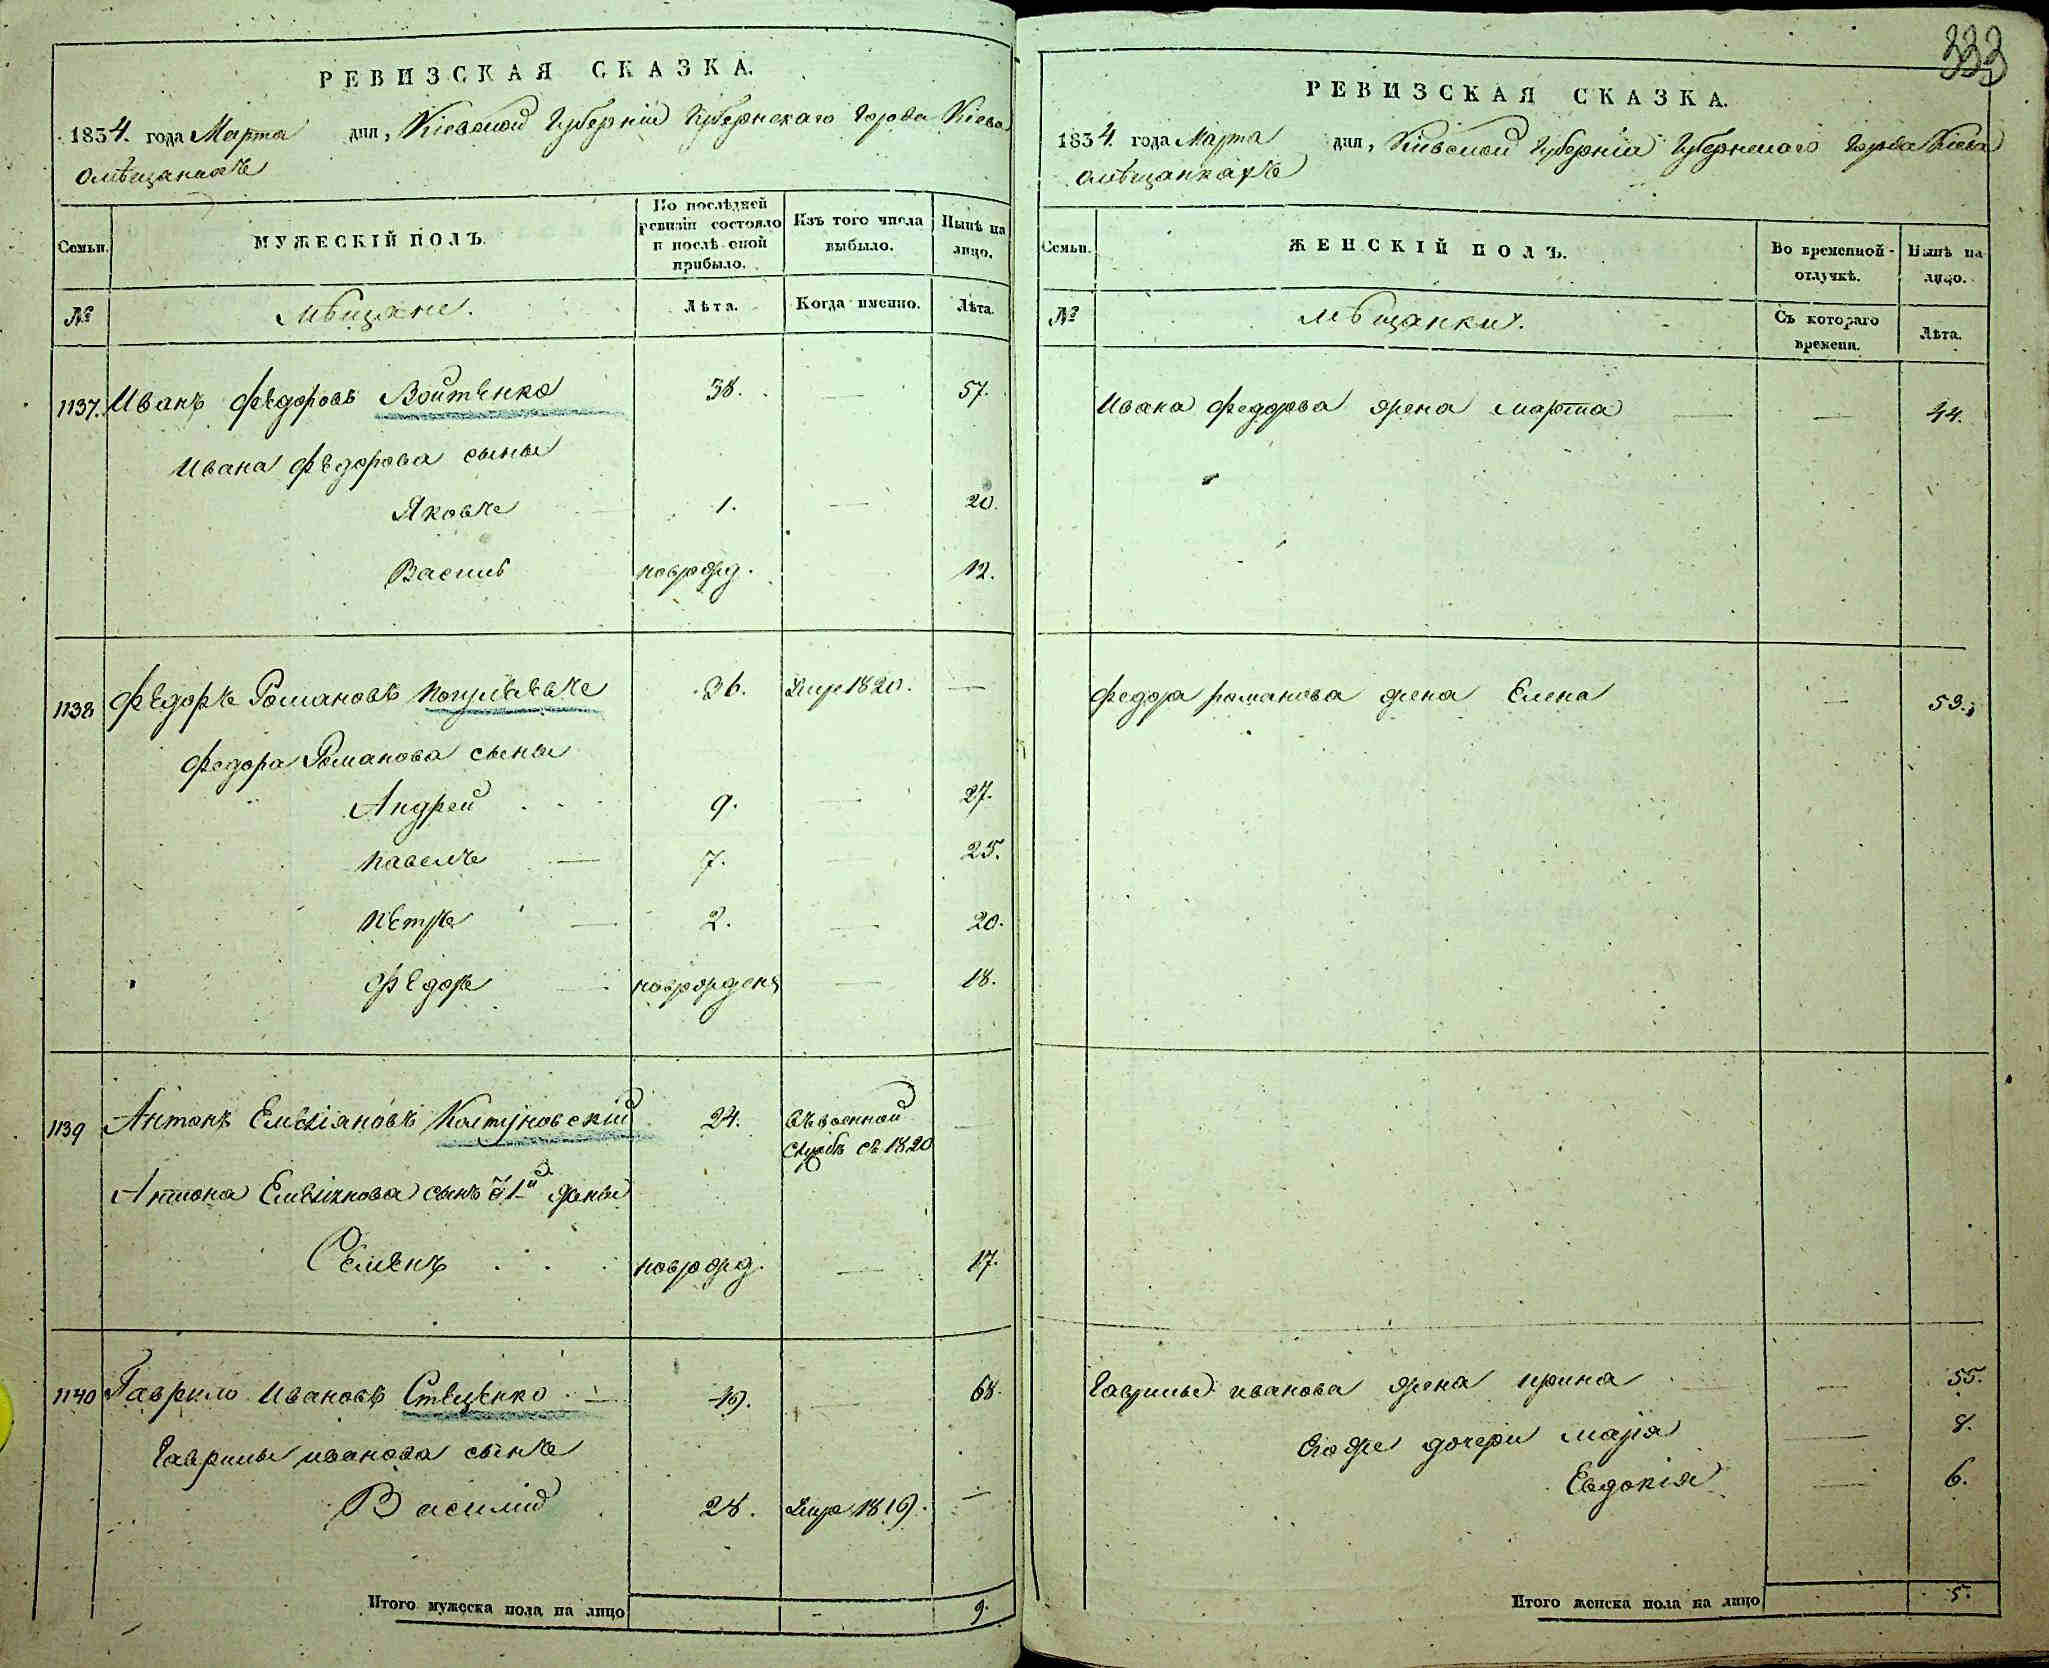 333
РЕВИЗСКАЯ СКАЗКА.
1834. года Марта дня, Кіевской Губерніи Губернскаго Города Кіева
омѣщанахъ
Семьи. МУЖЕСКІЙ ПОЛЪ. По послѣдней ревизіи состояло и послѣ оной прибыло. Изъ того числа выбыло. Нынѣ на лицо.
№ Мѣщане. Лѣта. Когда именно. Лѣта.
1137. Иванъ Федоровъ Войтенко 38. — 57.
Ивана Федорова сыны
Яковъ 1. — 20.
Васил новорожд. 12.
1138 Федоръ Романовъ 36. Умре 1820. —
Федора Романова сыны
Андрей 9. — 27.
Павелъ — 7. — 25.
Петръ — 2. — 20.
Федоръ — новорожден — 18.
1139 Антонъ Емеліановъ Колтуновскій 24. въ военной службѣ съ 1820 —
Антона Емеліанова сынъ 1й жены
Семенъ новорожд. — 17.
1140 Гаврило Ивановъ Стеценко — 49. — 68.
Гаврилы иванова сынъ
Василій 28. Умре 1819. —
Итого мужеска пола на лицо — 9.
РЕВИЗСКАЯ СКАЗКА.
1834. года Марта дня, Кіевской Губерніи Губернскаго Города Кіева
омѣщанкахъ
Семьи. ЖЕНСКІЙ ПОЛЪ. Во временной отлучкѣ. Нынѣ на лицо.
№ Мѣщанки. Съ котораго времени. Лѣта.
Ивана Федорова жена Марта — 44.
Федора романова жена Елена — 59.
Гаврилы иванова жена ирина — 55.
Егоже дочери марія — 8.
Евдокія — 6.
Итого женска пола на лицо 5.